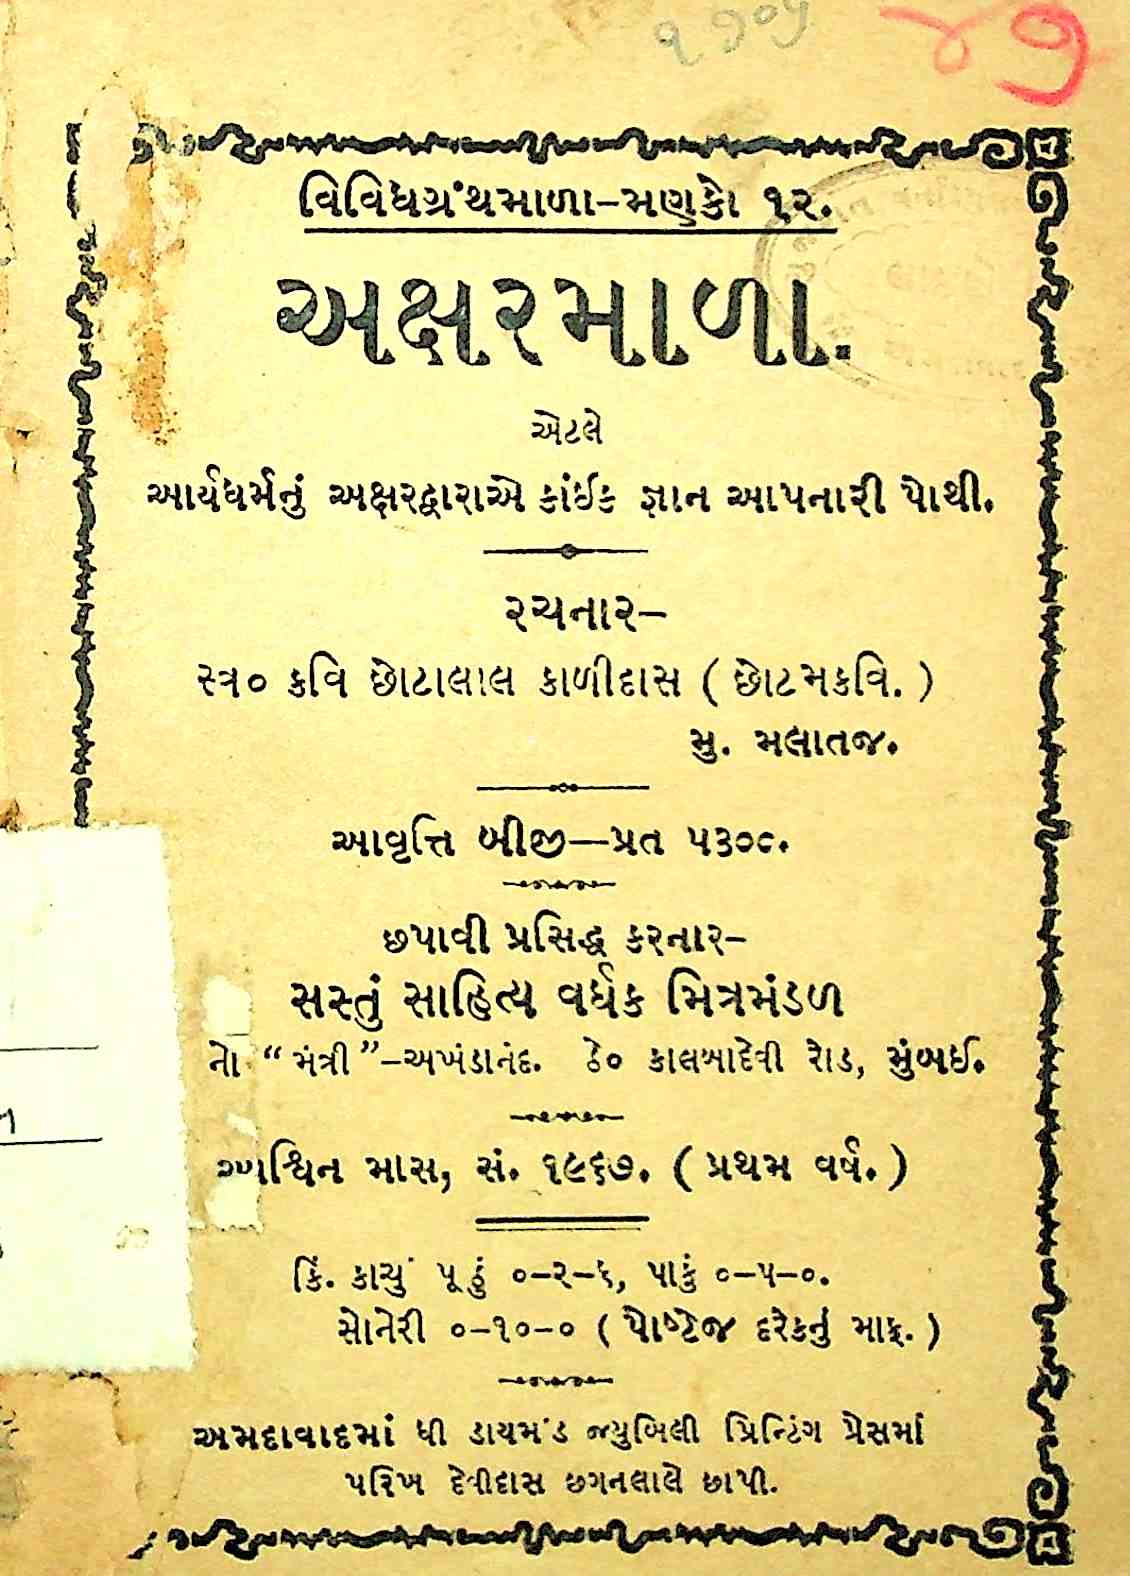 ૧૭૦૫
૪૭
વિવિધગ્રંથમાળા–મણકો ૧૨.
અક્ષરમાળા.
એટલે
આર્યધર્મનું અક્ષરદ્વારાએ કાંઈક જ્ઞાન આપનારી પોથી.
રચનાર–
સ્વ૦ કવિ છોટાલાલ કાળીદાસ ( છોટમકવિ. )
મુ. મલાતજ.
આવૃત્તિ બીજી—પ્રત ૫૩૦૦.
છપાવી પ્રસિદ્ધ કરનાર–
સસ્તું સાહિત્ય વર્ધક મિત્રમંડળ
નો “મંત્રી”–અખંડાનંદ. ઠે૦ કાલબાદેવી રોડ, મુંબઈ.
આશ્વિન માસ, સં. ૧૯૬૭. ( પ્રથમ વર્ષ. )
કિં. કાચું પૂઠું ૦–૨–૬, પાકું ૦–૫–૦.
સોનેરી ૦–૧૦–૦ ( પોષ્ટેજ દરેકનું માફ. )
અમદાવાદમાં ધી ડાયમંડ જ્યુબિલી પ્રિન્ટિંગ પ્રેસમાં
પરિખ દેવીદાસ છગનલાલે છાપી.